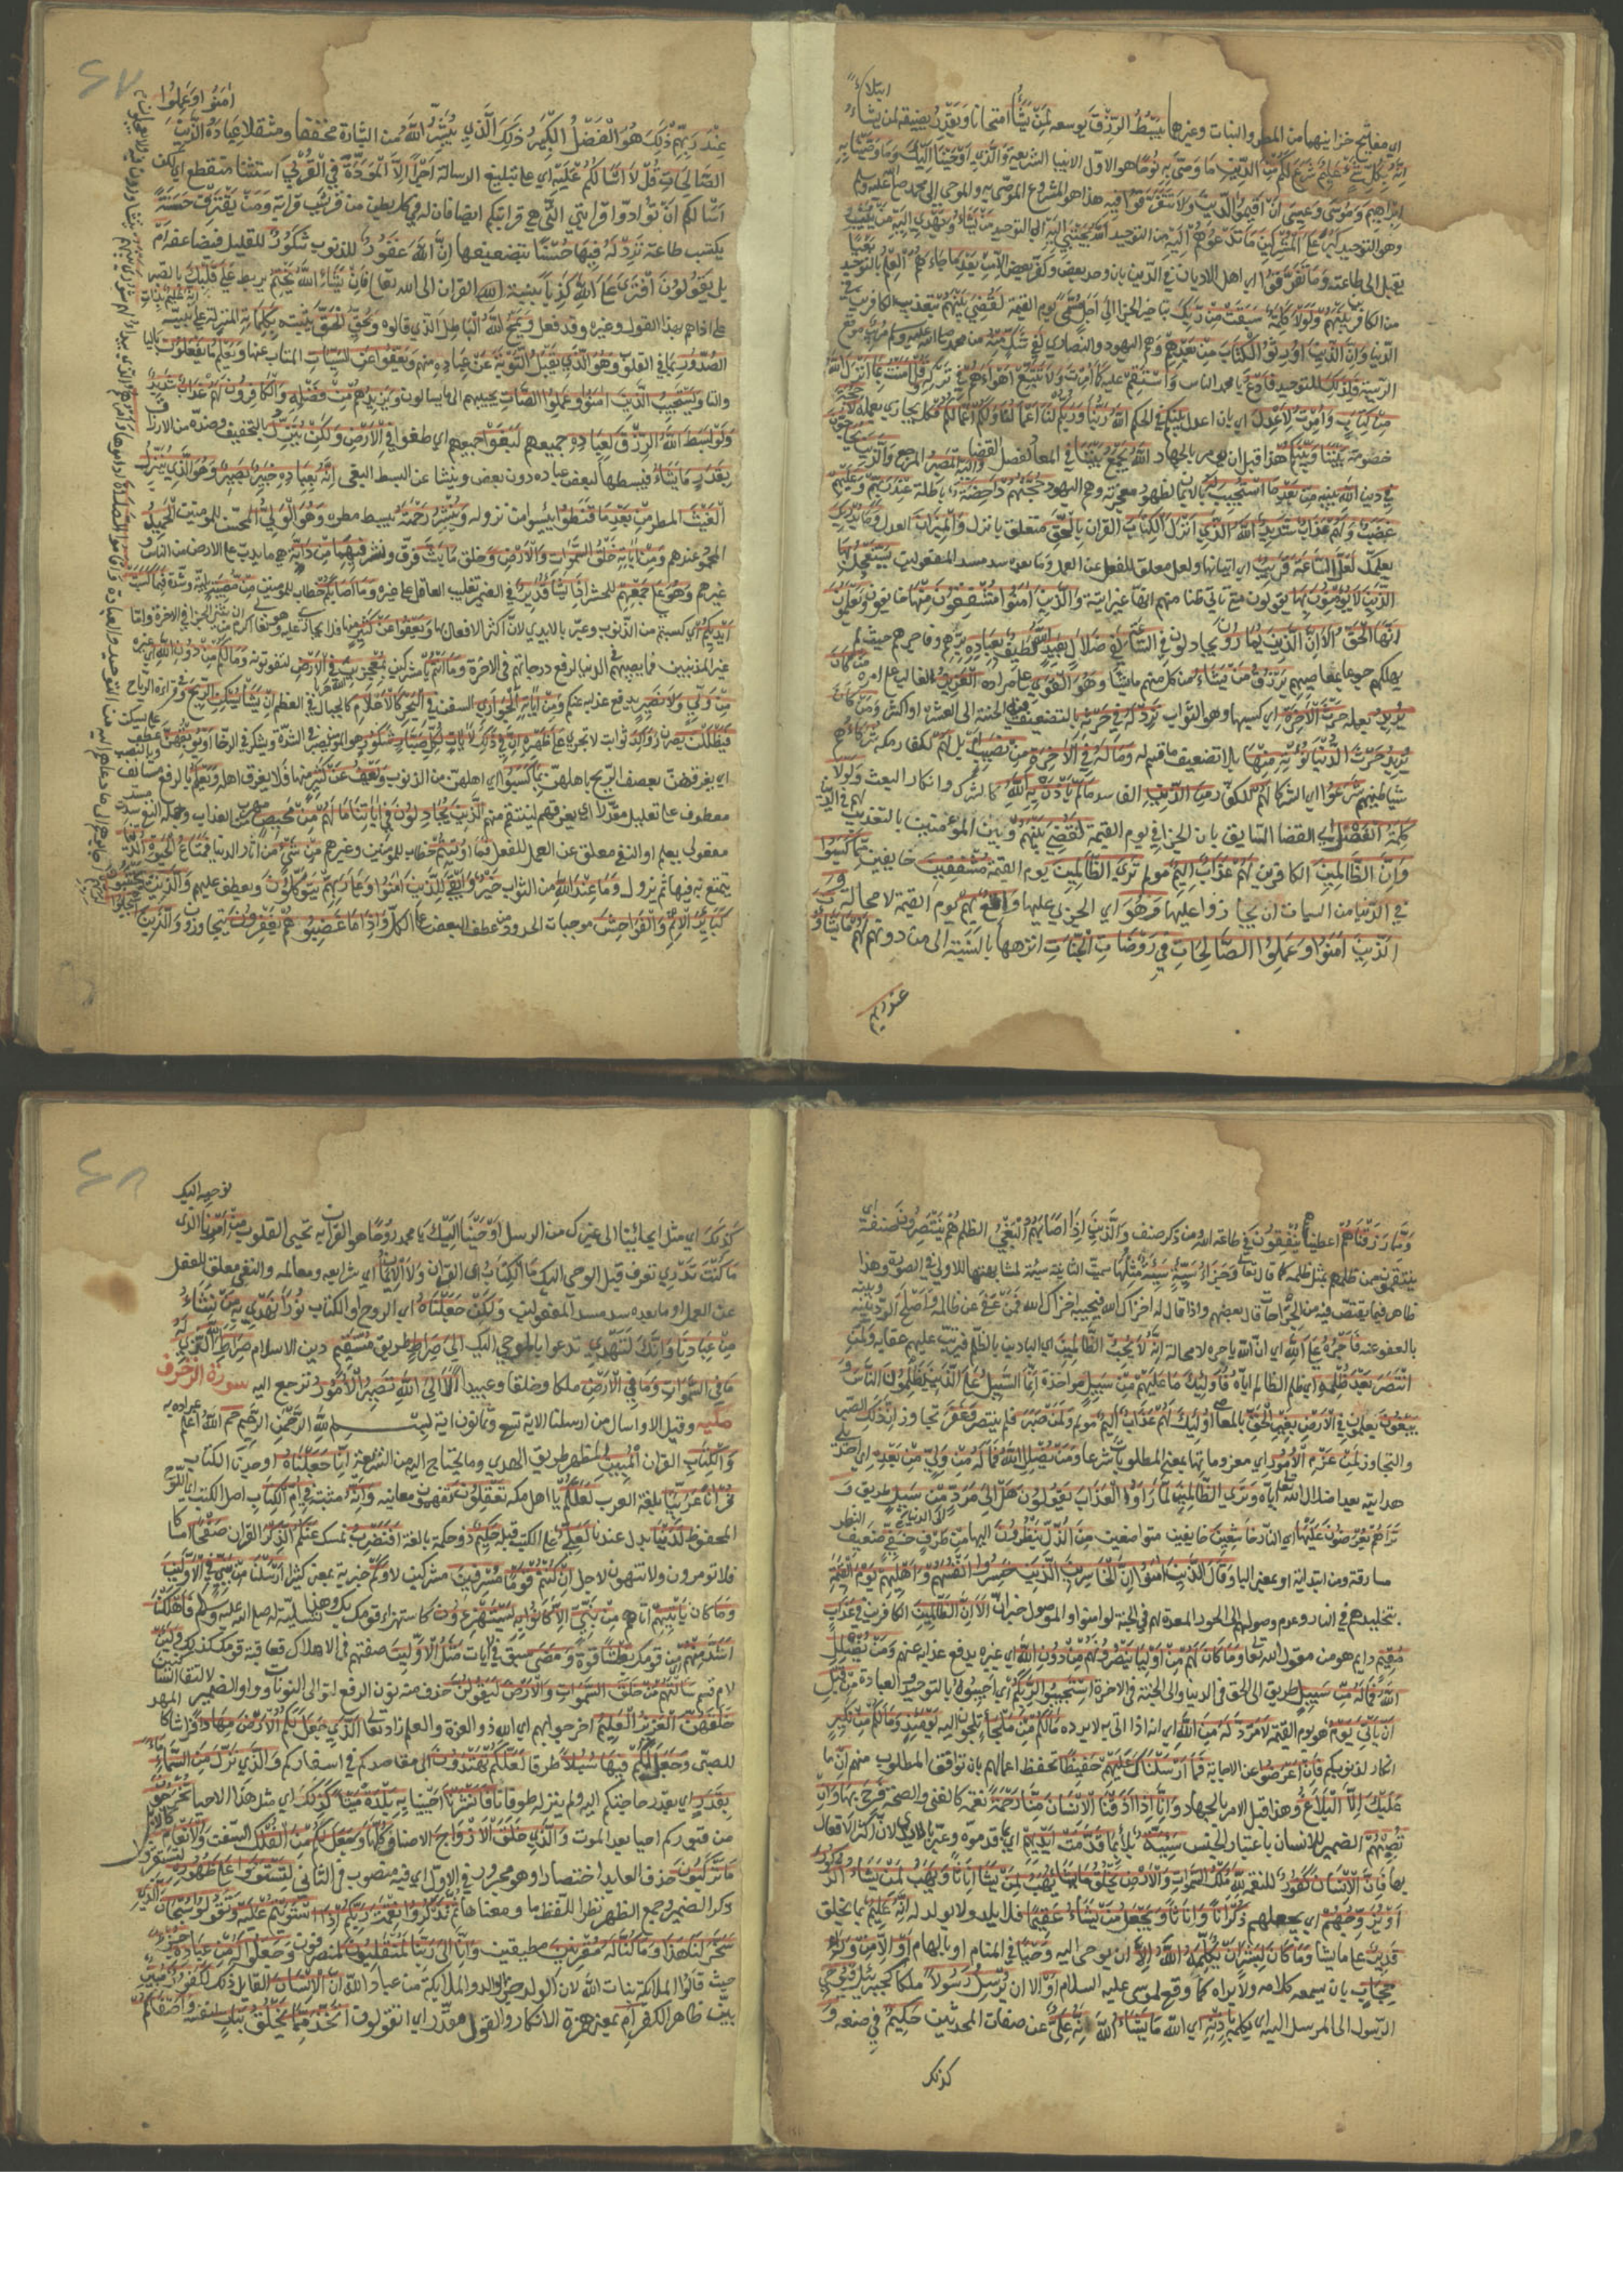 اي مفاتيح خزاينهما من المطر والنبات وغيرها يَبْسُطُ الرِّزْقَ يوسعه لِمَنْ يَشَاءُ امتحانا وَيَقْدِرُ يضيقه لمن يشاء
ابتلاءً
اِنَّهُ بِكُلِّ شَيْءٍ عَلِيمٌ شَرَعَ لَكُمْ مِنَ الدِّينِ مَا وَصَّى بِهِ نُوحًا هو اول الانبيا الشريعة وَالَّذِي اَوْحَيْنَا اِلَيْكَ وَمَا وَصَّيْنَا بِهِ
اِبْرَاهِيمَ وَمُوسَى وَعِيسَى اَنْ اَقِيمُوا الدِّينَ وَلَا تَتَفَرَّقُوا فِيهِ هذا هو المشروع الموصى به والموحى الى محمد صلى الله عليه وسلم
وهو التوحيد كَبُرَ عَلَى الْمُشْرِكِينَ مَا تَدْعُوهُمْ اِلَيْهِ من التوحيد اَللَّهُ يَجْتَبِي اِلَيْهِ الى التوحيد مَنْ يَشَاءُ وَيَهْدِي اِلَيْهِ مَنْ يُنِيبُ
يقبل الى طاعته وَمَا تَفَرَّقُوا اي اهل الاديان في الدين بان وحد بعض وكفر بعض اِلَّا مِنْ بَعْدِ مَا جَاءَهُمُ الْعِلْمُ بالتوحيد بَغْيًا
من الكافرين بَيْنَهُمْ وَلَوْلَا كَلِمَةٌ سَبَقَتْ مِنْ رَبِّكَ بتاخير الجزا اِلَى اَجَلٍ مُسَمًّى يوم القيمة لَقُضِيَ بَيْنَهُمْ بتعذيب الكافرين في
الدنيا وَاِنَّ الَّذِينَ اُورِثُوا الْكِتَابَ مِنْ بَعْدِهِمْ وهم اليهود والنصارى لَفِي شَكٍّ مِنْهُ من محمد صلى الله عليه وسلم مُرِيبٍ موقع
الريبة فَلِذَلِكَ للتوحيد فَادْعُ يا محمد الناس وَاسْتَقِمْ عليه كَمَا اُمِرْتَ وَلَا تَتَّبِعْ اَهْوَاءَهُمْ في تركه وَقُلْ اَمَنْتُ بِمَا اَنْزَلَ اللَّهُ
مِنْ كِتَابٍ وَاُمِرْتُ لِاَعْدِلَ اي بان اعدل بَيْنَكُمُ في الحكم اللَّهُ رَبُّنَا وَرَبُّكُمْ لَنَا اَعْمَالُنَا وَلَكُمْ اَعْمَالُكُمْ فكل يجازى بعمله لَا حُجَّةَ
خصومة بَيْنَنَا وَبَيْنَكُمُ هذا قبل ان يومر بالجهاد اللَّهُ يَجْمَعُ بَيْنَنَا في المعاد لفصل القضا وَاِلَيْهِ الْمَصِيرُ المرجع وَالَّذِينَ يُحَاجُّونَ
فِي دين اللَّهِ نبيه مِنْ بَعْدِ مَا اسْتُجِيبَ لَهُ بالايمان لظهور معجزته وهم اليهود حُجَّتُهُمْ دَاحِضَةٌ باطلة عِنْدَ رَبِّهِمْ وَعَلَيْهِمْ
غَضَبٌ وَلَهُمْ عَذَابٌ شَدِيدٌ اَللَّهُ الَّذِي اَنْزَلَ الْكِتَابَ القران بِالْحَقِّ متعلق بانزل وَالْمِيزَانَ العدل وَمَا يُدْرِيكَ
يعلمك لَعَلَّ السَّاعَةَ قَرِيبٌ اي اتيانها ولعل معلق للفعل عن العمل وما بعده سد مسد المفعولين يَسْتَعْجِلُ بِهَا
الَّذِينَ لَا يُؤْمِنُونَ بِهَا يقولون متى تاتي ظنا منهم انها غير اتية وَالَّذِينَ اَمَنُوا مُشْفِقُونَ مِنْهَا خايفون وَيَعْلَمُونَ
اَنَّهَا الْحَقُّ اَلَا اِنَّ الَّذِينَ يُمَارُونَ يجادلون فِي السَّاعَةِ لَفِي ضَلَالٍ بَعِيدٍ اللَّهُ لَطِيفٌ بِعِبَادِهِ برهم وفاجرهم حيث لم
يهلكهم جوعا بمعاصيهم يَرْزُقُ مَنْ يَشَاءُ من كل منهم ما يشا وَهُوَ الْقَوِيُّ على مراده الْعَزِيزُ الغالب على امره مَنْ كَانَ
يُرِيدُ بعمله حَرْثَ الْاَخِرَةِ اي كسبها وهو الثواب نَزِدْ لَهُ فِي حَرْثِهِ بالتضعيف فيه الحسنة الى العشرة او اكثر وَمَنْ كَانَ
يُرِيدُ حَرْثَ الدُّنْيَا نُؤْتِهِ مِنْهَا بلا تضعيف ما قسم له وَمَا لَهُ فِي الْاَخِرَةِ مِنْ نَصِيبٍ اَمْ بل لَهُمْ لكفار مكة شُرَكَاءُ هم
شياطينهم شَرَعُوا اي الشركا لَهُمْ للكفار مِنَ الدِّينِ الفاسد مَا لَمْ يَاْذَنْ بِهِ اللَّهُ كالشرك وانكار البعث وَلَوْلَا
كَلِمَةُ الْفَصْلِ اي القضا السابق بان الجزا في يوم القيمة لَقُضِيَ بَيْنَهُمْ وبين المؤمنين بالتعذيب لهم في الدنيا
وَاِنَّ الظَّالِمِينَ الكافرين لَهُمْ عَذَابٌ اَلِيمٌ مولم تَرَى الظَّالِمِينَ يوم القيمة مُشْفِقِينَ خايفين مِمَّا كَسَبُوا
في الدنيا من السيات ان يجازوا عليها وَهُوَ اي الجزا عليها وَاقِعٌ بِهِمْ يوم القيمة لا محالة وَ
الَّذِينَ اَمَنُوا وَعَمِلُوا الصَّالِحَاتِ فِي رَوْضَاتِ الْجَنَّاتِ انزهها بالنسبة الى من دونهم لَهُمْ مَا يَشَاؤُنَ
عند ربهم
٤٧
عِنْدَ رَبِّهِمْ ذَلِكَ هُوَ الْفَضْلُ الْكَبِيرُ ذَلِكَ الَّذِي يُبَشِّرُ اللَّهُ من البشارة مخففا ومثقلا عِبَادَهُ الَّذِينَ اَمَنُوا وَعَمِلُوا
الصَّالِحَاتِ قُلْ لَا اَسْاَلُكُمْ عَلَيْهِ اي على تبليغ الرسالة اَجْرًا اِلَّا الْمَوَدَّةَ فِي الْقُرْبَى استثنا منقطع اي لكن
اسالكم ان تؤادوا قرابتي التي هي قرابتكم ايضا فان له في كل بطن من قريش قرابة وَمَنْ يَقْتَرِفْ حَسَنَةً
يكتسب طاعة نَزِدْ لَهُ فِيهَا حُسْنًا بتضعيفها اِنَّ اللَّهَ غَفُورٌ للذنوب شَكُورٌ للقليل فيضاعفه اَمْ
بل يَقُولُونَ افْتَرَى عَلَى اللَّهِ كَذِبًا بنسبة القران الى الله تعا فَاِنْ يَشَاءِ اللَّهُ يَخْتِمْ يربط عَلَى قَلْبِكَ بالصبر
على اذاهم بهذا القول وغيره وقد فعل وَيَمْحُ اللَّهُ الْبَاطِلَ الذي قالوه وَيُحِقُّ الْحَقَّ يثبته بِكَلِمَاتِهِ المنزلة على نبيه اِنَّهُ عَلِيمٌ بِذَاتِ
الصُّدُورِ بما في القلوب وَهُوَ الَّذِي يَقْبَلُ التَّوْبَةَ عَنْ عِبَادِهِ منهم وَيَعْفُو عَنِ السَّيِّئَاتِ المتاب عنها وَيَعْلَمُ مَا يَفْعَلُونَ باليا
والتا وَيَسْتَجِيبُ الَّذِينَ اَمَنُوا وَعَمِلُوا الصَّالِحَاتِ يجيبهم الى ما يسالون وَيَزِيدُهُمْ مِنْ فَضْلِهِ وَالْكَافِرُونَ لَهُمْ عَذَابٌ شَدِيدٌ
وَلَوْ بَسَطَ اللَّهُ الرِّزْقَ لِعِبَادِهِ جميعهم لَبَغَوْا جميعهم اي طغوا فِي الْاَرْضِ وَلَكِنْ يُنَزِّلُ بالتخفيف وضده من الارزاق
بِقَدَرٍ مَا يَشَاءُ فيبسطها لبعض عباده دون بعض وينشا عن البسط البغي اِنَّهُ بِعِبَادِهِ خَبِيرٌ بَصِيرٌ وَهُوَ الَّذِي يُنَزِّلُ
الْغَيْثَ المطر مِنْ بَعْدِ مَا قَنَطُوا يئسوا من نزوله وَيَنْشُرُ رَحْمَتَهُ يبسط مطره وَهُوَ الْوَلِيُّ المحسن للمومنين الْحَمِيدُ
المحمود عندهم وَمِنْ اَيَاتِهِ خَلْقُ السَّمَوَاتِ وَالْاَرْضِ وَخلق مَا بَثَّ فرق ونشر فِيهِمَا مِنْ دَابَّةٍ هي ما يدب على الارض من الناس و
غيرهم وَهُوَ عَلَى جَمْعِهِمْ للحشر اِذَا يَشَاءُ قَدِيرٌ في الضمير تغليب العاقل على غيره وَمَا اَصَابَكُمْ خطاب للمومنين مِنْ مُصِيبَةٍ بلية وشدة فَبِمَا كَسَبَتْ
اَيْدِيكُمْ اي كسبتم من الذنوب وعبر بالايدي لان اكثر الافعال بها وَيَعْفُو عَنْ كَثِيرٍ منها فلا يجازى عليه وهو تعا اكرم من ان يثني الجزا في الاخرة واما
غير المذنبين فما يصيبهم في الدنيا لرفع درجاتهم في الاخرة وَمَا اَنْتُمْ يا مشركين بِمُعْجِزِينَ فِي الْاَرْضِ فتفوتونه وَمَا لَكُمْ مِنْ دُونِ اللَّهِ اي غيره
مِنْ وَلِيٍّ وَلَا نَصِيرٍ يدفع عذابه عنكم وَمِنْ اَيَاتِهِ الْجَوَارِ السفن فِي الْبَحْرِ كَالْاَعْلَامِ كالجبال في العظم اِنْ يَشَاْ يُسْكِنِ الرِّيحَ وفي قراءة الرياح
فَيَظْلَلْنَ يصرن رَوَاكِدَ ثوابت لا تجري عَلَى ظَهْرِهِ اِنَّ فِي ذَلِكَ لَاَيَاتٍ لِكُلِّ صَبَّارٍ شَكُورٍ هو المومن يصبر في الشدة ويشكر في الرخا اَوْ يُوبِقْهُنَّ عطف على يسكن
اي يغرقهن بعصف الريح باهلهن بِمَا كَسَبُوا اي اهلهن من الذنوب وَيَعْفُ عَنْ كَثِيرٍ منها فلا يغرق اهله وَيَعْلَمَ بالرفع مستانف وبالنصب
معطوف على تعليل مقدر اي يغرقهم لينتقم منهم الَّذِينَ يُجَادِلُونَ فِي اَيَاتِنَا مَا لَهُمْ مِنْ مَحِيصٍ مهرب من العذاب وجملة النفي سدت مسد
مفعولي يعلم او النفي معلق عن العمل فَمَا اُوتِيتُمْ خطاب للمومنين وغيرهم مِنْ شَيْءٍ من اثاث الدنيا فَمَتَاعُ الْحَيَوةِ الدُّنْيَا
يتمتع به فيها ثم يزول وَمَا عِنْدَ اللَّهِ من الثواب خَيْرٌ وَاَبْقَى لِلَّذِينَ اَمَنُوا وَعَلَى رَبِّهِمْ يَتَوَكَّلُونَ ويعطف عليهم وَالَّذِينَ يَجْتَنِبُونَ
كَبَائِرَ الْاِثْمِ وَالْفَوَاحِشَ موجبات الحدود من عطف البعض على الكل وَاِذَا مَا غَضِبُوا هُمْ يَغْفِرُونَ يتجاوزون وَالَّذِينَ
اسْتَجَابُوا لِرَبِّهِمْ اجابوه الى ما دعاهم اليه من التوحيد والعبادة وَاَقَامُوا الصَّلَوةَ اداموها وَاَمْرُهُمْ الذي يبدو لهم شُورَى بَيْنَهُمْ يتشاورون فيه ولا يعجلون
وَمِمَّا رَزَقْنَاهُمْ اعطيناهم يُنْفِقُونَ في طاعة الله ومن ذكر صنف وَالَّذِينَ اِذَا اَصَابَهُمُ الْبَغْيُ الظلم هُمْ يَنْتَصِرُونَ صنف اي
ينتقمون ممن ظلمهم بمثل ظلمه كما قال تعا وَجَزَاءُ سَيِّئَةٍ سَيِّئَةٌ مِثْلُهَا سميت الثانية سيئة لمشابهتها للاولى في الصورة وهذا
ظاهر فيما يقتص فيه من الجراحات قال بعضهم واذا قال له اخزاك الله فيجيبه اخزاك الله فَمَنْ عَفَا عن ظالمه وَاَصْلَحَ الود بينه وبينه
بالعفو عنه فَاَجْرُهُ عَلَى اللَّهِ اي ان الله ياجره لا محالة اِنَّهُ لَا يُحِبُّ الظَّالِمِينَ اي البادين بالظلم فيترتب عليهم عقابه وَلَمَنِ
انْتَصَرَ بَعْدَ ظُلْمِهِ اي ظلم الظالم اياه فَاُولَئِكَ مَا عَلَيْهِمْ مِنْ سَبِيلٍ مواخذة اِنَّمَا السَّبِيلُ عَلَى الَّذِينَ يَظْلِمُونَ النَّاسَ وَ
يَبْغُونَ يعملون فِي الْاَرْضِ بِغَيْرِ الْحَقِّ بالمعاصي اُولَئِكَ لَهُمْ عَذَابٌ اَلِيمٌ مولم وَلَمَنْ صَبَرَ فلم ينتصر وَغَفَرَ تجاوز اِنَّ ذَلِكَ الصبر
والتجاوز لَمِنْ عَزْمِ الْاُمُورِ اي معزوماتها بمعنى المطلوبات شرعا وَمَنْ يُضْلِلِ اللَّهُ فَمَا لَهُ مِنْ وَلِيٍّ مِنْ بَعْدِهِ اي احد يلي
هدايته بعد اضلال الله تعا اياه وَتَرَى الظَّالِمِينَ لَمَّا رَاَوُا الْعَذَابَ يَقُولُونَ هَلْ اِلَى مَرَدٍّ الى الدنيا مِنْ سَبِيلٍ طريق وَ
تَرَاهُمْ يُعْرَضُونَ عَلَيْهَا اي النار خَاشِعِينَ خايفين متواضعين مِنَ الذُّلِّ يَنْظُرُونَ اليها مِنْ طَرْفٍ خَفِيٍّ ضعيف النظر
مسارقة ومن ابتدائية او بمعنى اليا وَقَالَ الَّذِينَ اَمَنُوا اِنَّ الْخَاسِرِينَ الَّذِينَ خَسِرُوا اَنْفُسَهُمْ وَاَهْلِيهِمْ يَوْمَ الْقِيمَةِ
بتخليدهم في النار وعدم وصولهم الى الحور المعدة لهم في الجنة لو امنوا والموصول خبر ان اَلَا اِنَّ الظَّالِمِينَ الكافرين فِي عَذَابٍ
مُقِيمٍ دايم هو من مقول الله تعا وَمَا كَانَ لَهُمْ مِنْ اَوْلِيَاءَ يَنْصُرُونَهُمْ مِنْ دُونِ اللَّهِ اي غيره يدفع عذابه عنهم وَمَنْ يُضْلِلِ
اللَّهُ فَمَا لَهُ مِنْ سَبِيلٍ طريق الى الحق في الدنيا والى الجنة في الاخرة اِسْتَجِيبُوا لِرَبِّكُمْ اي اجيبوه بالتوحيد والعبادة مِنْ قَبْلِ
اَنْ يَاْتِيَ يَوْمٌ هو يوم القيمة لَا مَرَدَّ لَهُ مِنَ اللَّهِ اي انه اذا اتى به لا يرده مَا لَكُمْ مِنْ مَلْجَاٍ تلجون اليه يَوْمَئِذٍ وَمَا لَكُمْ مِنْ نَكِيرٍ
انكار لذنوبكم فَاِنْ اَعْرَضُوا عن الاجابة فَمَا اَرْسَلْنَاكَ عَلَيْهِمْ حَفِيظًا تحفظ اعمالهم بان توافق المطلوب منهم اِنْ ما
عَلَيْكَ اِلَّا الْبَلَاغُ وهذا قبل الامر بالجهاد وَاِنَّا اِذَا اَذَقْنَا الْاِنْسَانَ مِنَّا رَحْمَةً نعمة كالغنى والصحة فَرِحَ بِهَا وَاِنْ
تُصِبْهُمْ الضمير للانسان باعتبار الجنس سَيِّئَةٌ بلاء بِمَا قَدَّمَتْ اَيْدِيهِمْ اي بما قدموه وعبر بالايدي لان اكثر الافعال
بها فَاِنَّ الْاِنْسَانَ كَفُورٌ للنعمة لِلَّهِ مُلْكُ السَّمَوَاتِ وَالْاَرْضِ يَخْلُقُ مَا يَشَاءُ يَهَبُ لِمَنْ يَشَاءُ اِنَاثًا وَيَهَبُ لِمَنْ يَشَاءُ الذُّكُورَ
اَوْ يُزَوِّجُهُمْ اي يجعلهم ذُكْرَانًا وَاِنَاثًا وَيَجْعَلُ مَنْ يَشَاءُ عَقِيمًا فلا يلد ولا يولد له اِنَّهُ عَلِيمٌ بما يخلق
قَدِيرٌ على ما يشا وَمَا كَانَ لِبَشَرٍ اَنْ يُكَلِّمَهُ اللَّهُ اِلَّا ان يوحى اليه وَحْيًا في المنام او بالهام اَوْ الا مِنْ وَرَاءِ
حِجَابٍ بان يسمعه كلامه ولا يراه كما وقع لموسى عليه السلام اَوْ الا ان يُرْسِلَ رَسُولًا ملكا كجبرئيل فَيُوحِيَ
الرسول الى المرسل اليه اي يكلمه بِاِذْنِهِ اي الله مَا يَشَاءُ الله اِنَّهُ عَلِيٌّ عن صفات المحدثين حَكِيمٌ في صنعه وَ
كذلك
٤٨
كَذَلِكَ اي مثل ايحائنا الى غيرك من الرسل اَوْحَيْنَا اِلَيْكَ يا محمد رُوحًا هو القران به تحيى القلوب مِنْ اَمْرِنَا الذي نوحيه اليك
مَا كُنْتَ تَدْرِي تعرف قبل الوحي اليك مَا الْكِتَابُ اي القران وَلَا الْاِيمَانُ اي شرايعه ومعالمه والنفي معلق للفعل
عن العمل او ما بعده سد مسد المفعولين وَلَكِنْ جَعَلْنَاهُ اي الروح او الكتاب نُورًا نَهْدِي بِهِ مَنْ نَشَاءُ
مِنْ عِبَادِنَا وَاِنَّكَ لَتَهْدِي تدعو بالموحى اليك اِلَى صِرَاطٍ طريق مُسْتَقِيمٍ دين الاسلام صِرَاطِ اللَّهِ الَّذِي لَهُ
مَا فِي السَّمَوَاتِ وَمَا فِي الْاَرْضِ ملكا وخلقا وعبيدا اَلَا اِلَى اللَّهِ تَصِيرُ الْاُمُورُ ترجع اليه سورة الزخرف
مكية وقيل الا واسال من ارسلنا الاية تسع وثمانون اية بِسْمِ اللَّهِ الرَّحْمَنِ الرَّحِيمِ حم الله اعلم بمراده به
وَالْكِتَابِ القران الْمُبِينِ المظهر طريق الهدى وما يحتاج اليه من الشريعة اِنَّا جَعَلْنَاهُ اوجدنا الكتاب
قُرْاَنًا عَرَبِيًّا بلغة العرب لَعَلَّكُمْ يا اهل مكة تَعْقِلُونَ تفهمون معانيه وَاِنَّهُ مثبت فِي اُمِّ الْكِتَابِ اصل الكتب اي اللوح
المحفوظ لَدَيْنَا بدل عندنا لَعَلِيٌّ على الكتب قبله حَكِيمٌ ذو حكمة بالغة اَفَنَضْرِبُ نمسك عَنْكُمُ الذِّكْرَ القران صَفْحًا امساكا
فلا تومرون ولا تنهون لاجل اِنْ كُنْتُمْ قَوْمًا مُسْرِفِينَ مشركين لا وَكَمْ خبرية بمعنى كثيرا اَرْسَلْنَا مِنْ نَبِيٍّ فِي الْاَوَّلِينَ
وَمَا كان يَاْتِيهِمْ اتاهم مِنْ نَبِيٍّ اِلَّا كَانُوا بِهِ يَسْتَهْزِءُونَ كاستهزاء قومك بك وهذا تسلية له صلى الله عليه وسلم فَاَهْلَكْنَا
اَشَدَّ مِنْهُمْ من قومك بَطْشًا قوة وَمَضَى سبق في ايات مَثَلُ الْاَوَّلِينَ صفتهم في الاهلاك فعاقبة قومك كذلك وَلَئِنْ
لام قسم سَاَلْتَهُمْ مَنْ خَلَقَ السَّمَوَاتِ وَالْاَرْضَ لَيَقُولُنَّ حذف منه نون الرفع لتوالي النونات وواو الضمير لالتقا الساكنين
خَلَقَهُنَّ الْعَزِيزُ الْعَلِيمُ اخر جوابهم اي الله ذو العزة والعلم زاد تعالى الَّذِي جَعَلَ لَكُمُ الْاَرْضَ مِهَادًا فراشا كالمهد
للصبي وَجَعَلَ لَكُمْ فِيهَا سُبُلًا طرقا لَعَلَّكُمْ تَهْتَدُونَ الى مقاصدكم في اسفاركم وَالَّذِي نَزَّلَ مِنَ السَّمَاءِ مَاءً
بِقَدَرٍ اي بقدر حاجتكم اليه ولم ينزله طوفانا فَاَنْشَرْنَا احيينا بِهِ بَلْدَةً مَيْتًا كَذَلِكَ اي مثل هذا الاحيا تُخْرَجُونَ
من قبوركم احيا بعد الموت وَالَّذِي خَلَقَ الْاَزْوَاجَ الاصناف كُلَّهَا وَجَعَلَ لَكُمْ مِنَ الْفُلْكِ السفن وَالْاَنْعَامِ كالابل
مَا تَرْكَبُونَ حذف العايد اختصارا وهو مجرور في الاول اي فيه منصوب في الثاني لِتَسْتَوُوا لتستقروا عَلَى ظُهُورِهِ
ذكر الضمير وجمع الظهر نظرا للفظ ما ومعناها ثُمَّ تَذْكُرُوا نِعْمَةَ رَبِّكُمْ اِذَا اسْتَوَيْتُمْ عَلَيْهِ وَتَقُولُوا سُبْحَانَ الَّذِي
سَخَّرَ لَنَا هَذَا وَمَا كُنَّا لَهُ مُقْرِنِينَ مطيقين وَاِنَّا اِلَى رَبِّنَا لَمُنْقَلِبُونَ لمنصرفون وَجَعَلُوا لَهُ مِنْ عِبَادِهِ جُزْءًا
حيث قالوا الملائكة بنات الله لان الولد جزء الوالد والملائكة من عباد الله اِنَّ الْاِنْسَانَ القايل ذلك لَكَفُورٌ مُبِينٌ
بين ظاهر الكفر اَمِ بمعنى همزة الانكار والقول مقدر اي اتقولون اتَّخَذَ مِمَّا يَخْلُقُ بَنَاتٍ لنفسه وَاَصْفَاكُمْ